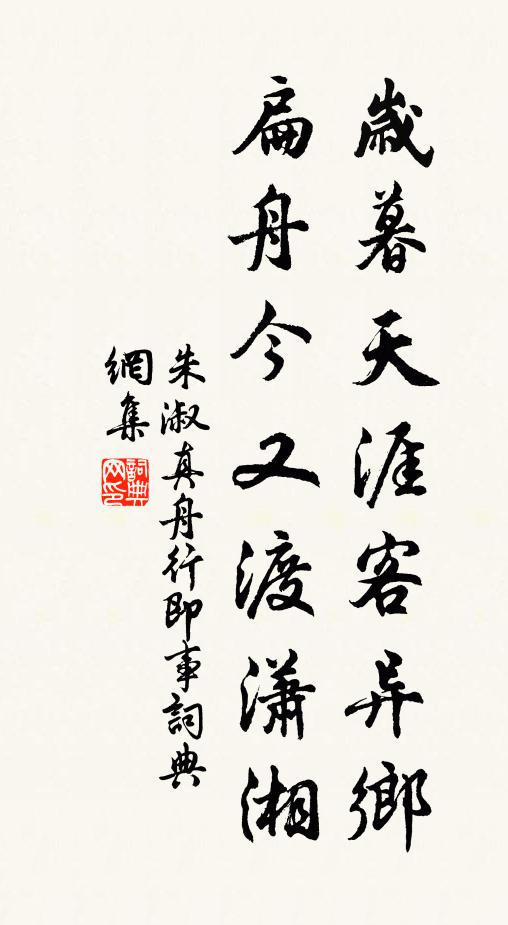 歲暮天涯客异鄉
扁舟今又渡瀟湘
朱淑真舟行即事詞典
網集
詞典網印